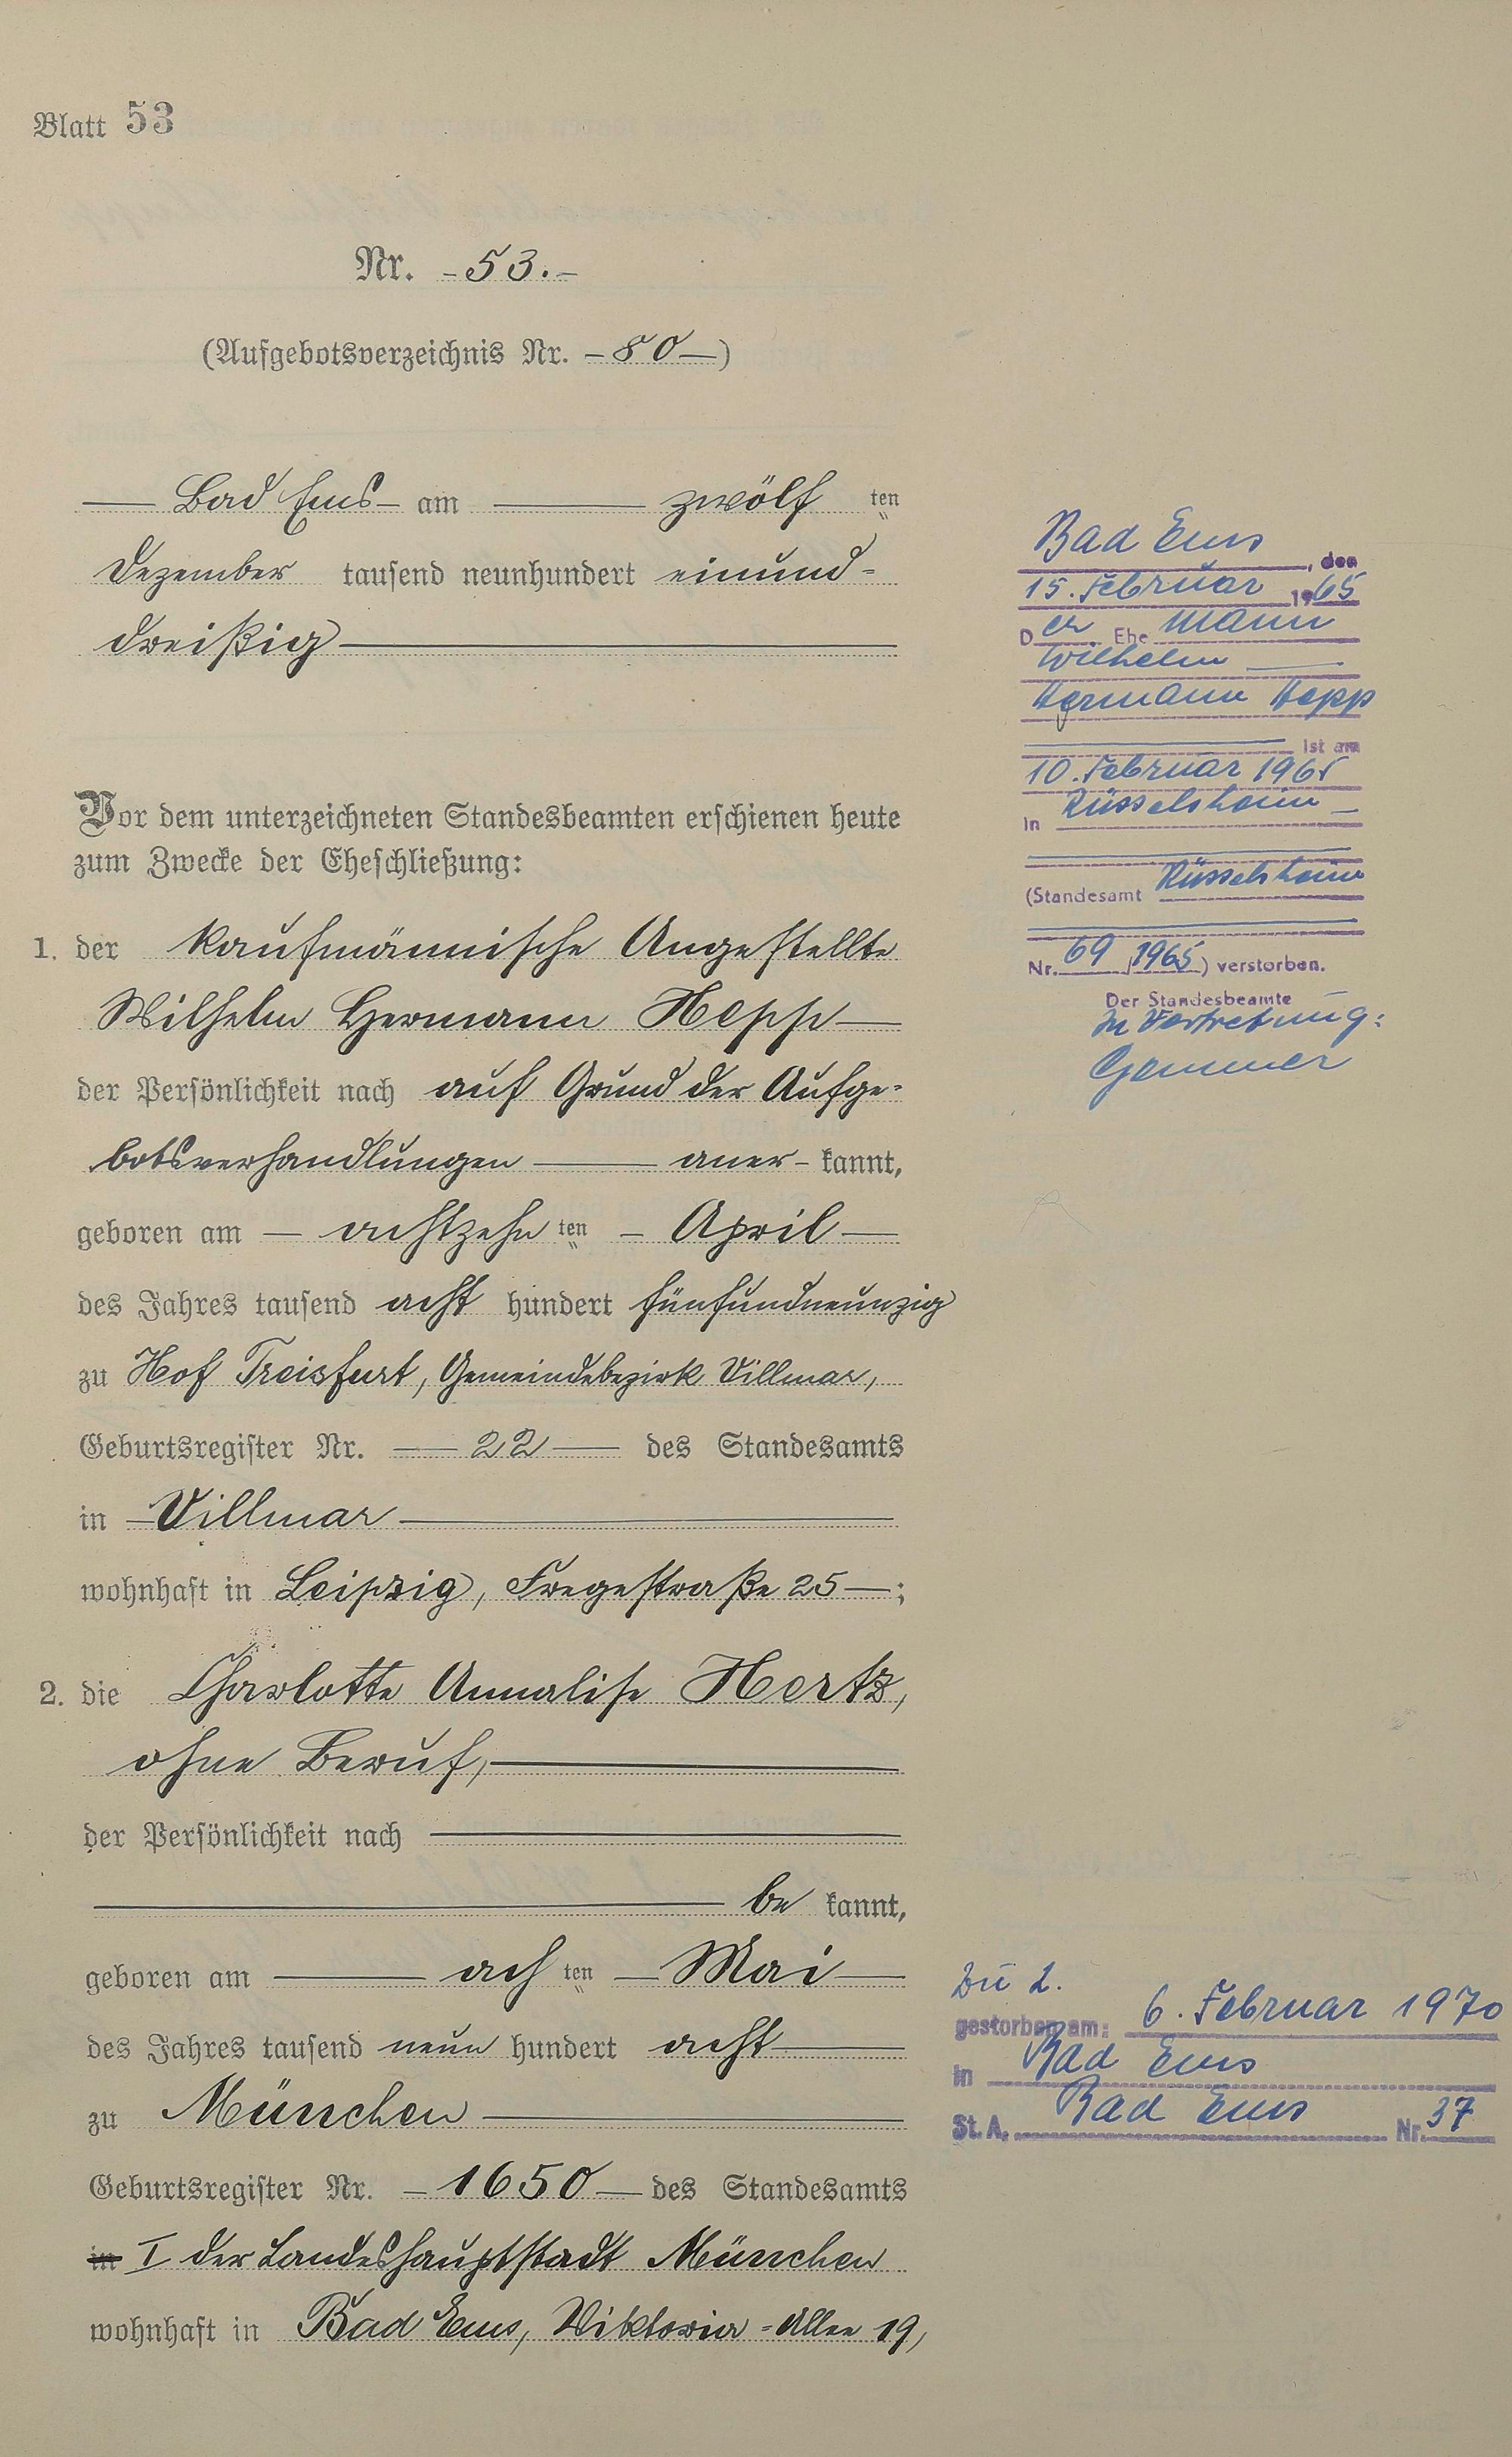 Blatt 53
Nr. - 53. -
(Aufgebotsverzeichnis Nr. - 80 - )
Bad Ems - am zwölf ten
Dezember tausend neunhundert einund=
dreißig
Vor dem unterzeichneten Standesbeamten erschienen heute
zum Zwecke der Eheschließung:
1. der kaufmännische Angestellte
Wilhelm Hermann Hepp
der Persönlichkeit nach auf Grund der Aufge=
botsverhandlungen aner - kannt,
geboren am - achtzehn ten - April
des Jahres tausend acht hundert fünfundneunzig
zu Hof Treisfurt, Gemeindebezirk Villmar,
Geburtsregister Nr. 22 des Standesamts
in - Villmar
wohnhaft in Leipzig, Fregestraße 25 - ;
2. die Charlotte Annalise Hertz,
ohne Beruf,
der Persönlichkeit nach
be kannt,
geboren am ach ten - Mai
des Jahres tausend neun hundert acht
zu München
Geburtsregister Nr. - 1650 - des Standesamts
in I der Landeshauptstadt München
wohnhaft in Bad Ems, Viktoria = Allee 19,
Bad Ems, den
15. Februar 1965
D er Ehe Mann
Wilhelm
Hermann Hepp
ist am
10. Februar 1965
in Rüsselsheim
(Standesamt Rüsselsheim
Nr. 69 / 1965 ) verstorben.
Der Standesbeamte
In Vertretung:
Gemmer
Zu 2.
gestorben am: 6. Februar 1970
in Bad Ems
St. A. Bad Ems Nr. 37